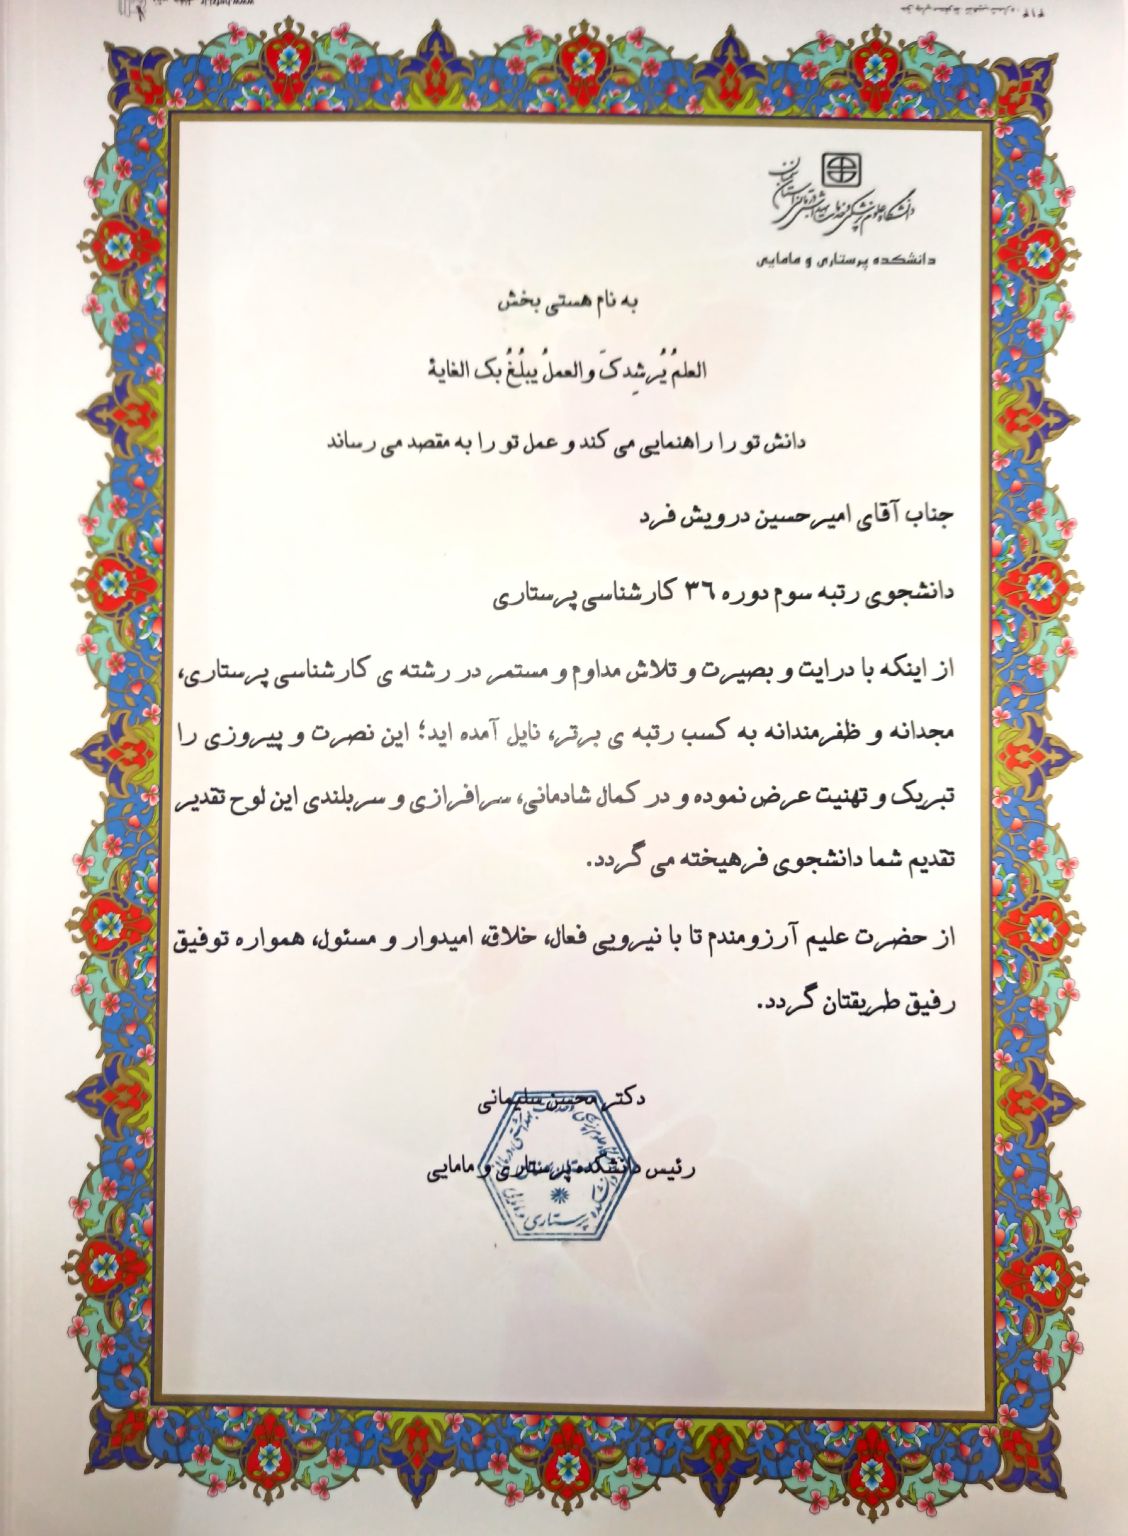 دانشگاه علوم پزشکی و خدمات بهداشتی درمانی استان سمنان
دانشکده پرستاری و مامایی
به نام هستی بخش
العلمُ یُرشِدکَ والعملُ یبلُغُ بک الغایة
دانش تو را راهنمایی می کند و عمل تو را به مقصد می رساند
جناب آقای امیرحسین درویش فرد
دانشجوی رتبه سوم دوره ۳۶ کارشناسی پرستاری
از اینکه با درایت و بصیرت و تلاش مداوم و مستمر در رشته ی کارشناسی پرستاری،
مجدانه و ظفرمندانه به کسب رتبه ی برتر، نایل آمده اید؛ این نصرت و پیروزی را
تبریک و تهنیت عرض نموده و در کمال شادمانی، سرافرازی و سربلندی این لوح تقدیر
تقدیم شما دانشجوی فرهیخته می گردد.
از حضرت علیم آرزومندم تا با نیرویی فعال، خلاق، امیدوار و مسئول، همواره توفیق
رفیق طریقتان گردد.
دکتر محسن سلیمانی
رئیس دانشکده پرستاری و مامایی